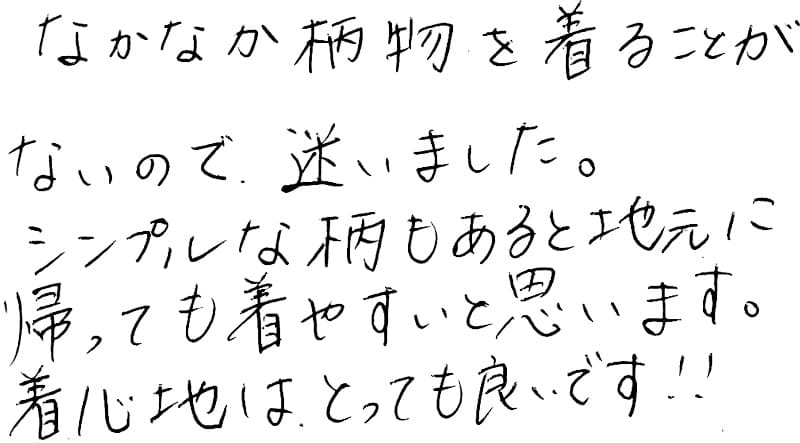 なかなか柄物を着ることが
ないので、迷いました。
シンプルな柄もあると地元に
帰っても着やすいと思います。
着心地は、とっても良いです!!